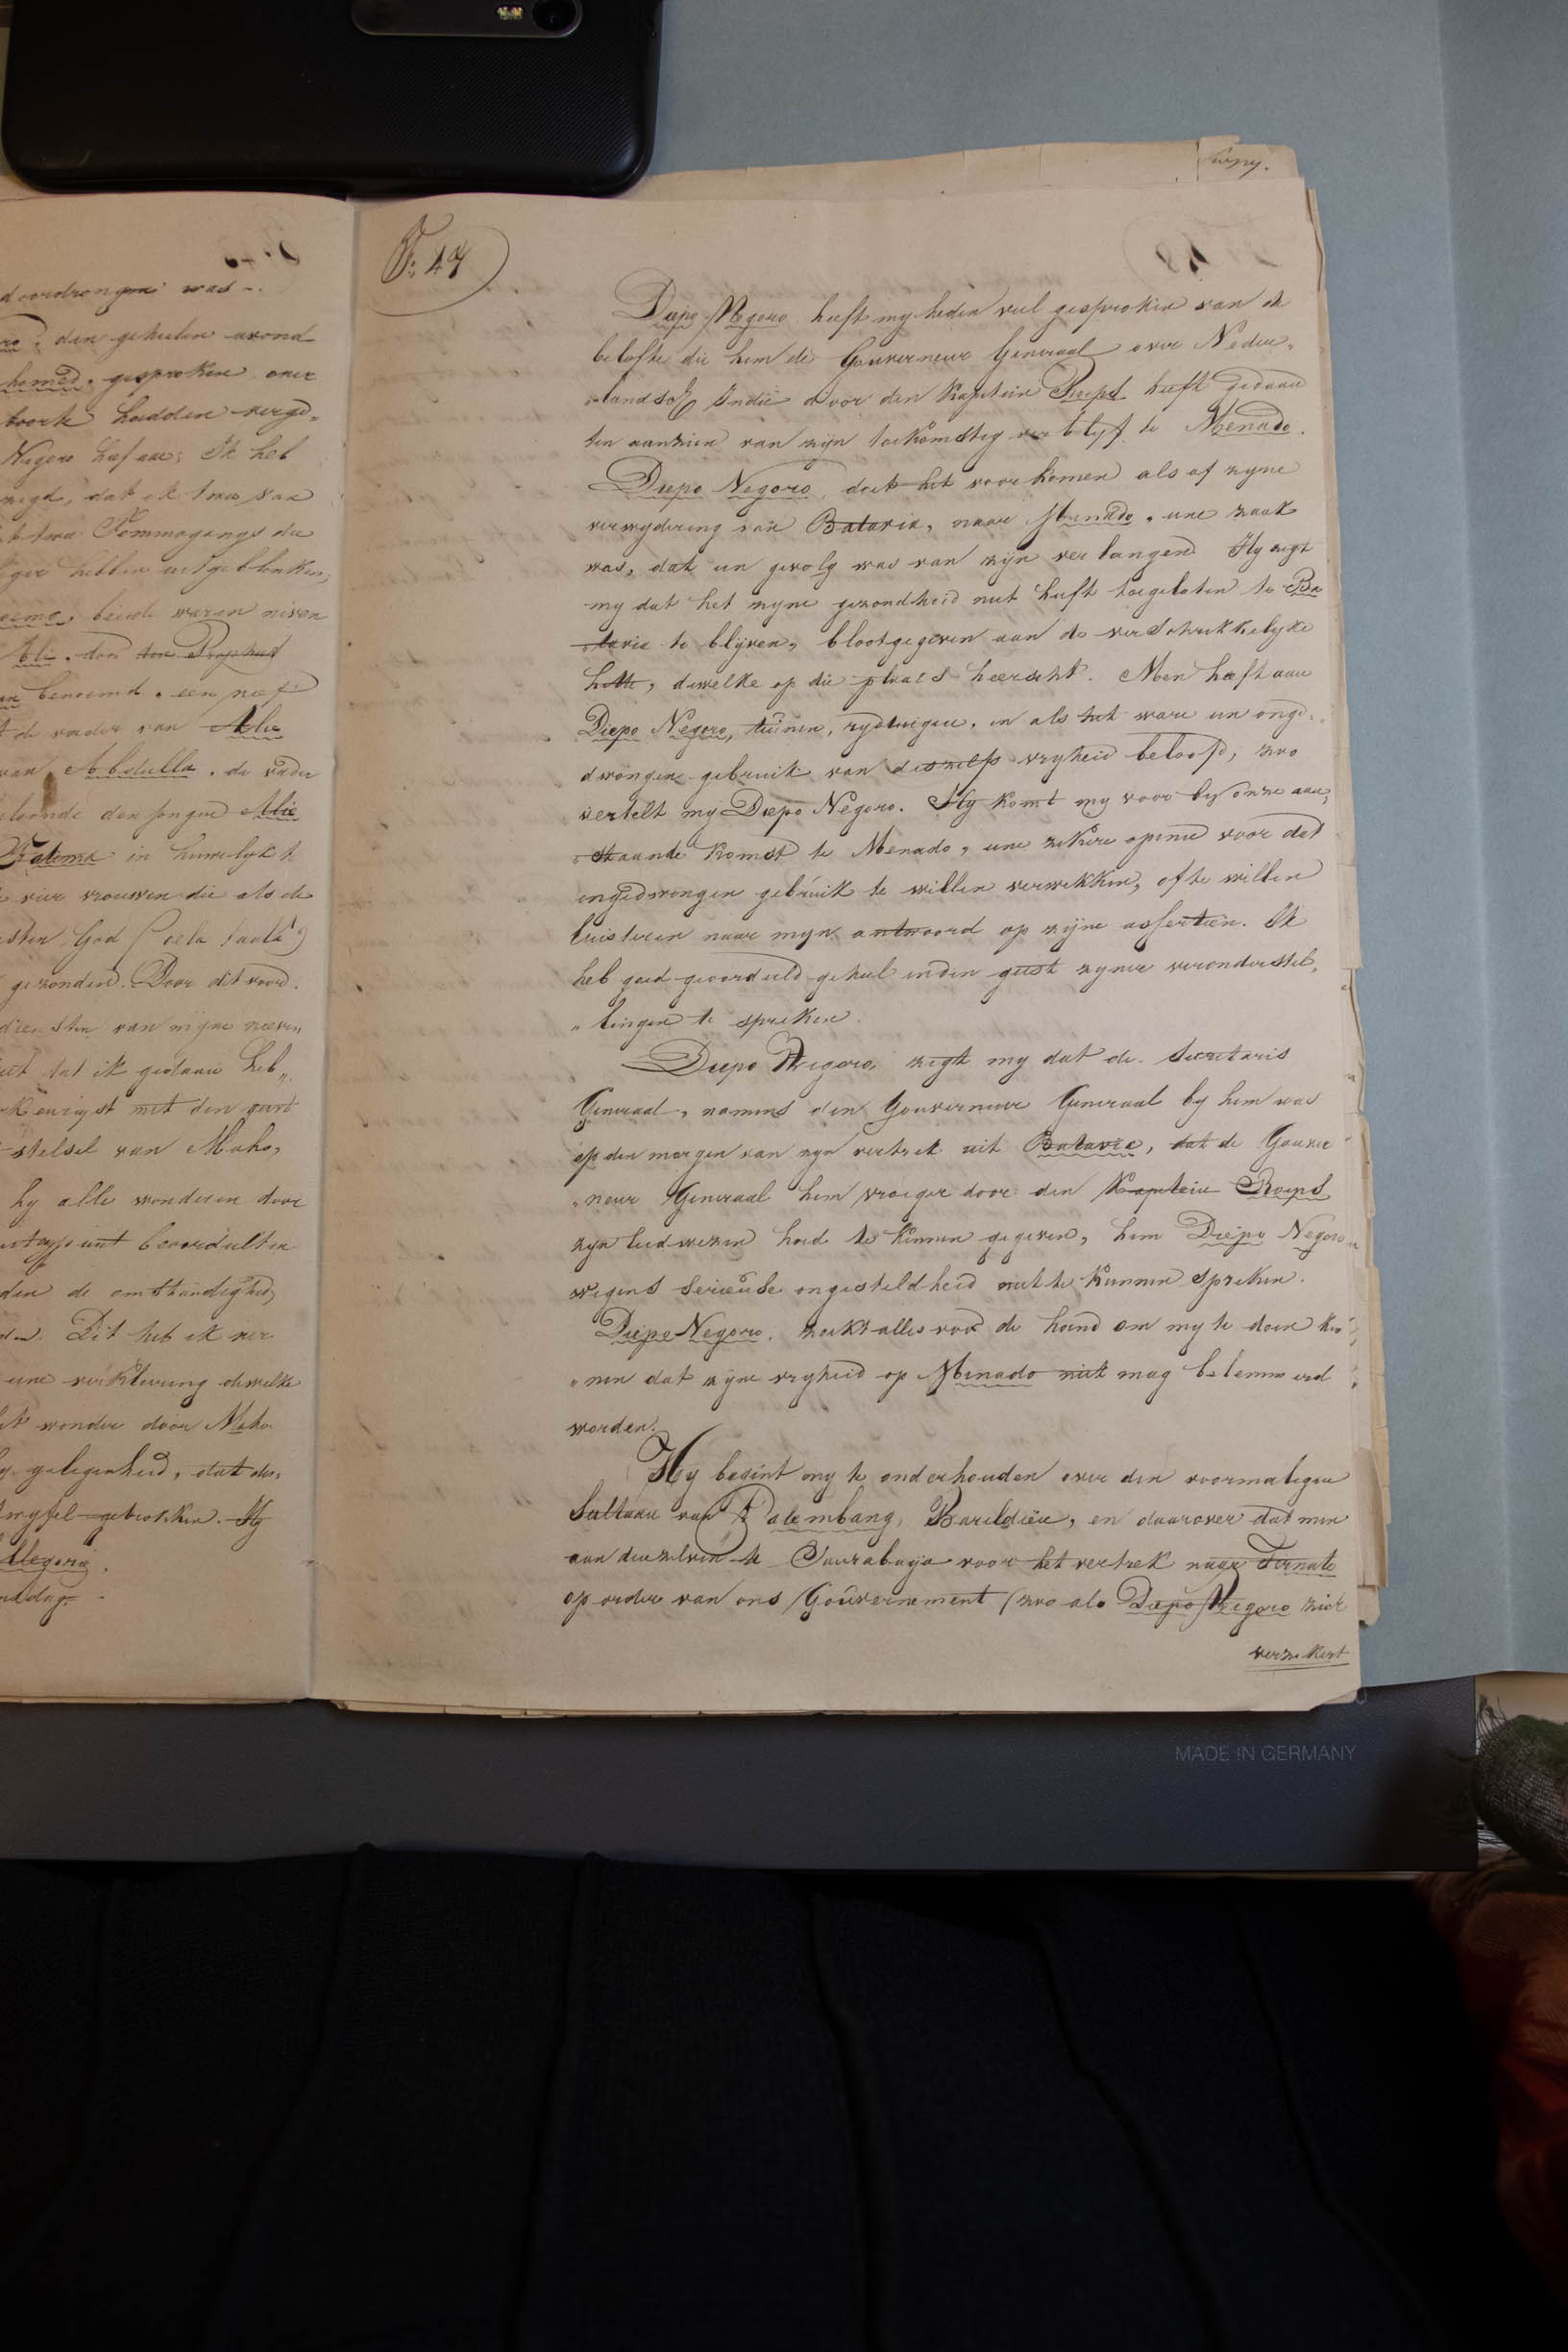 doordrongen was -.
den geheelen avond
homed. gesproken over
hadden verge=
Negoro haf aan; Ik heb
zegd, dat ik twee van
twee Tommogongs die
hebben uitgeblonken,
beide waren neven
Ali. door den Propheet
benoemd. een neef
de vader van Alie
van Abdulla. de vader
den jongen Alie
Fatema in huwelyk t
vier vrouwen die als de
God
gezonden. Door dit voord.
diensten van myne neven
dat ik gedaan heb„
met den geest
stelsel van Maho„
hy alle wonderen door
beoordeelten
den de omstandighed„
Dit heb ik ver
eene verklaring dewelke
wonder door Maho
gelegenheid, dat des„
twyfel getrokken. Hy
Allegorie.
middag. -
F: 47
Diepo Negoro heeft my heden veel gesproken van de
belofte die hem de Gouverneur Generaal over Neder„
„landsch Indie door den Kapitein Roeps heeft gedaan
ten aanzien van zyn toekomstig verblyf te Menado.
Diepo Negoro, doet het voorkomen als of zyne
verwydering van Batavia, naar Menado, eene zaak
was, dat een gevolg was van zyn verlangen. Hy zegt
my dat het zyne gezondheid niet heeft toegelaten te Ba
„tavia te blyven, blootgegeven aan de verschrikkelyke
hitte, dewelke op die plaats heerscht. Men heeft aan
Diepo Negoro, tuinen, rydtuigen, en als het ware een onge„
dwongen gebruik van deszelfs vryheid beloofd, zoo
vertelt my Diepo Negoro. Hy komt my voor by onze aan„
„staande komst te Menado, eene zekere opinie voor dat
ongedwongen gebruik te willen verwekken, of te willen
luisteren naar myn antwoord op zyne assertien. Ik
heb goed geoordeeld geheel in den geest zyner veronderstel„
„lingen te spreken.
Diepo Negoro, zegt my dat de Secretaris
Generaal, namens den Gouverneur Generaal by hem was
op den morgen van zyn vertrek uit Batavia, dat de Gouver
„neur Generaal hem vroeger door den Kapitein Roeps
zyn leedwezen had te kennen gegeven, hem Diepo Negoro
wegens serieuse ongesteldheid niet te kunnen spreken.
Diepo Negoro, zoekt alles voor de hand om my te doen ken
„nen dat zyne vryheid op Menado niet mag belemmerd
worden.
Hy begint my te onderhouden over den voormaligen
Sulthan van Palembang, Baruldien, en daarover dat men
aan denzelven te Sourabaya voor het vertrek naar Ternate
op order van ons Gouvernement (zoo als Diepo Negoro zich
verzekert
MADE IN GERMANY